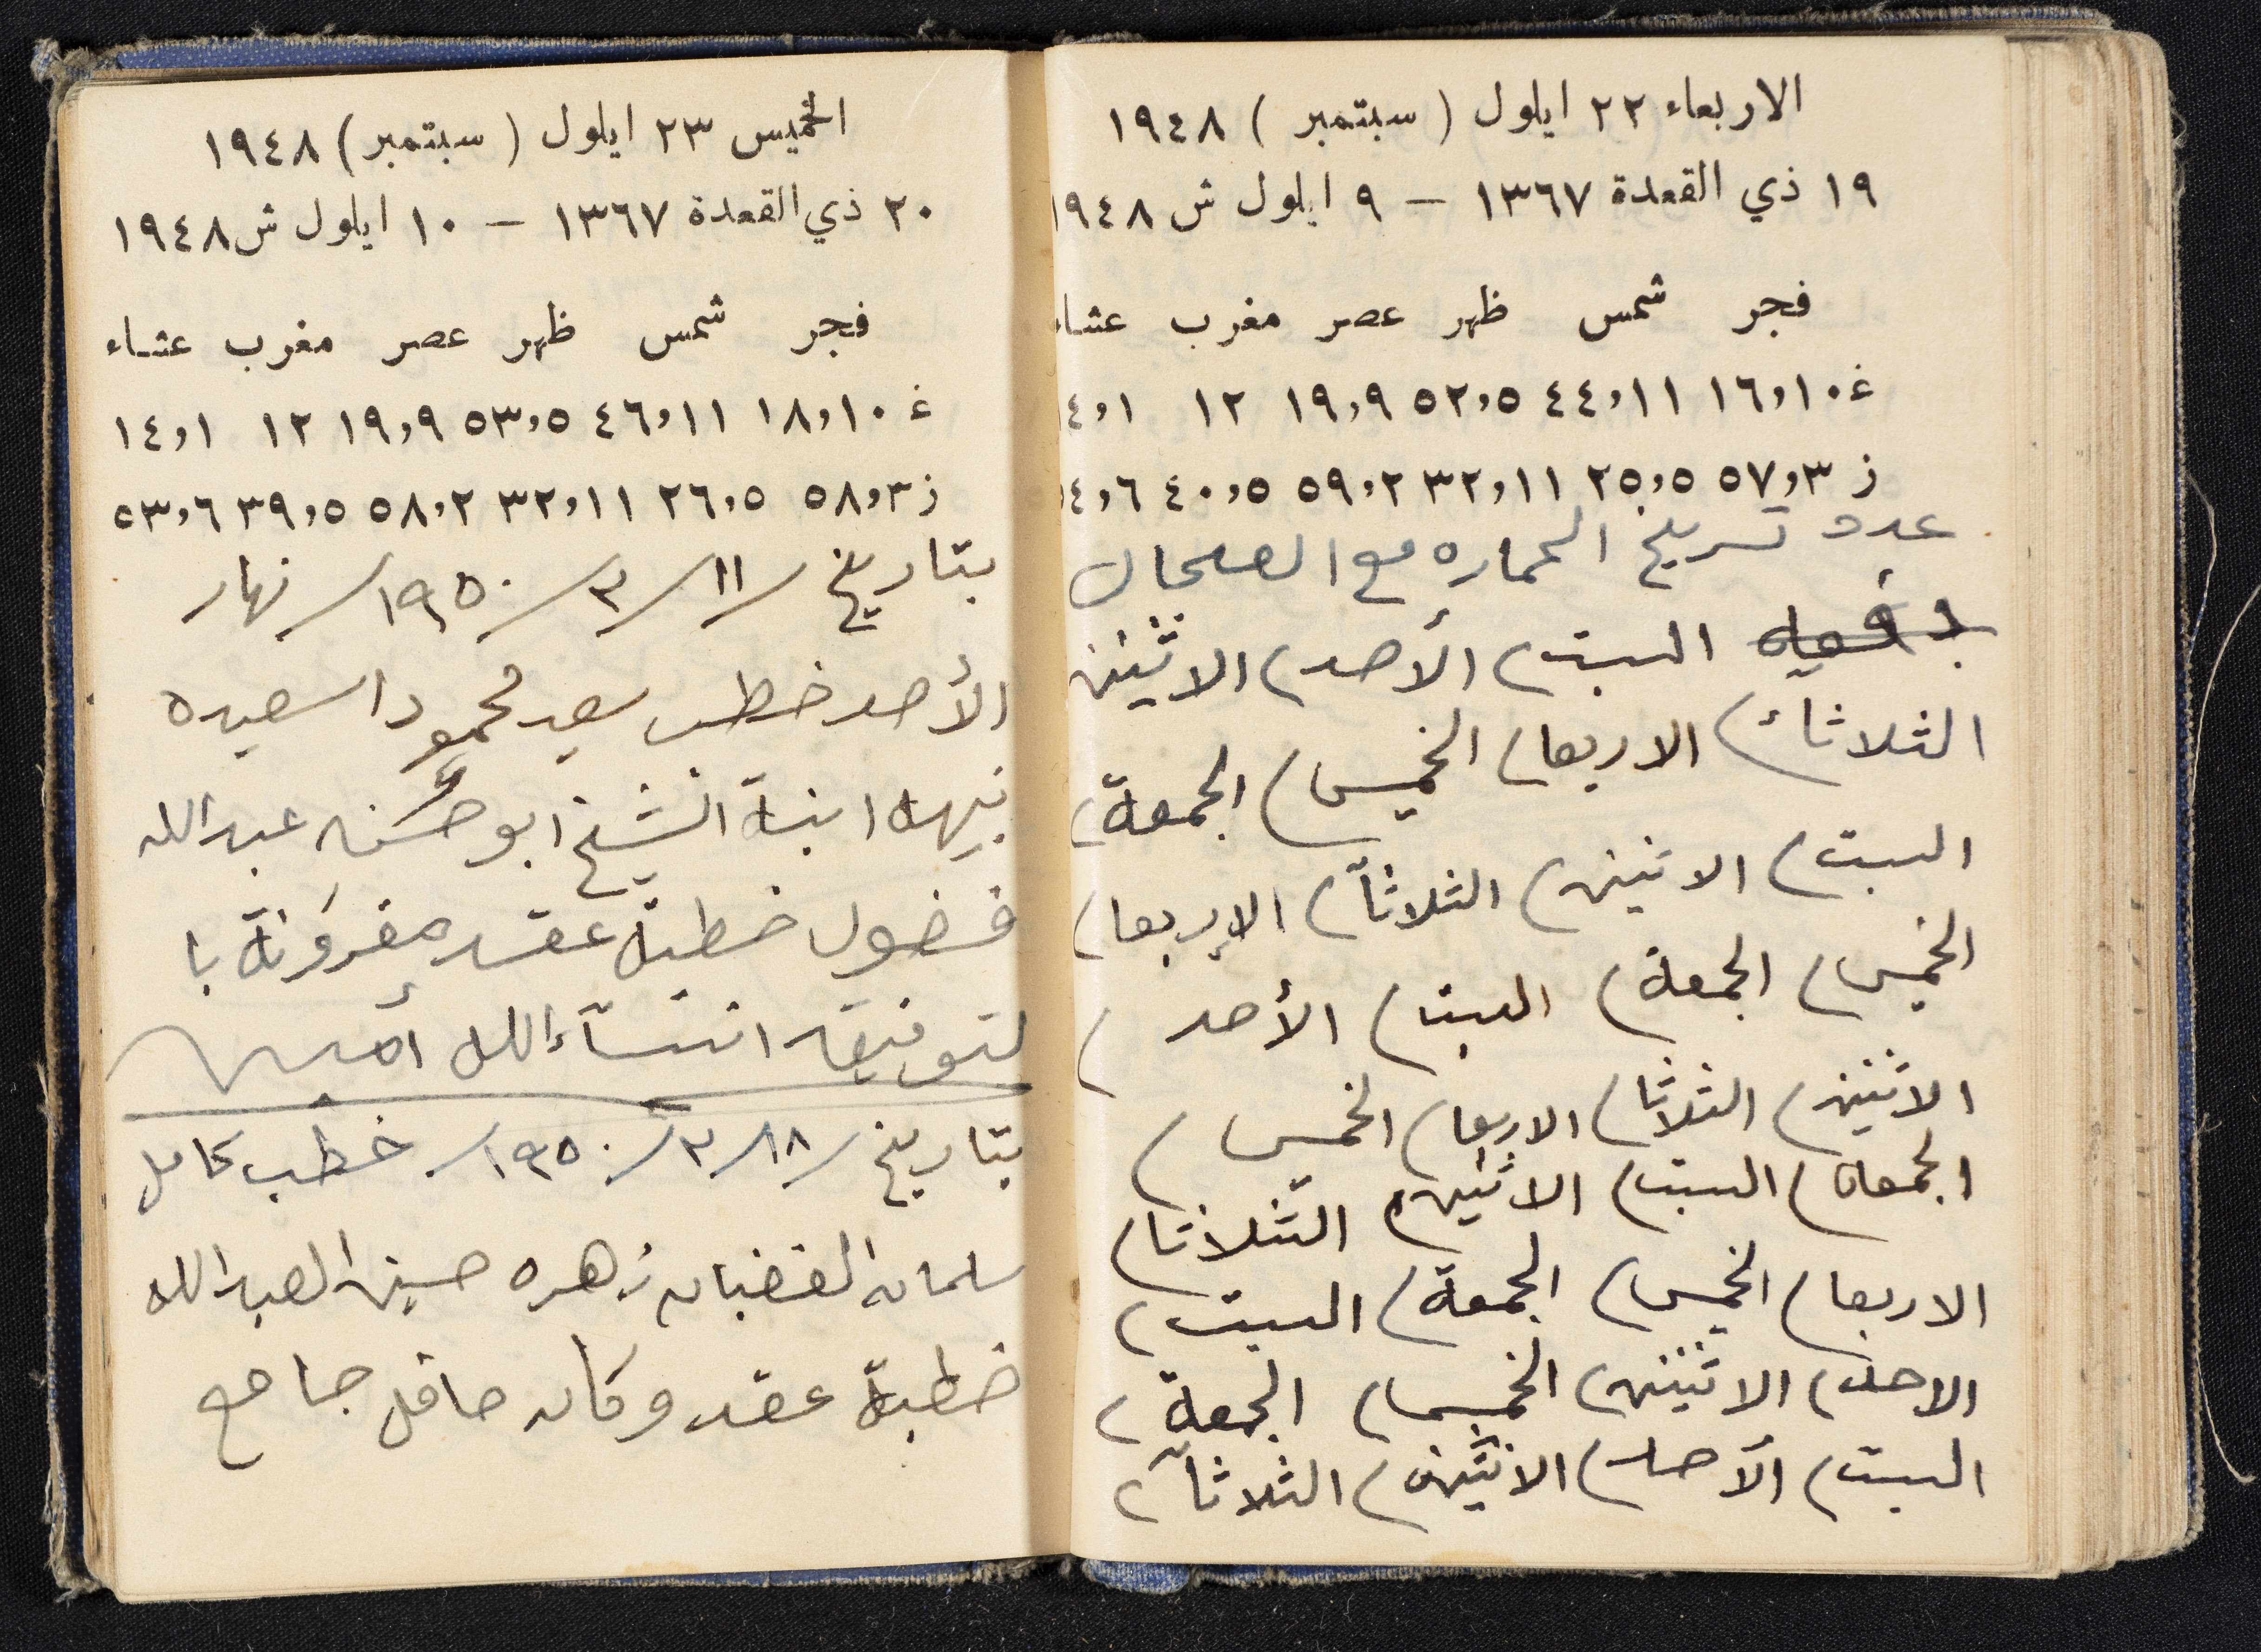 الاربعاء ٢٢ ايلول ( سبتمبر ) ١٩٤٨
١٩ ذي القعدة ١٣٦٧ — ٩ ايلول ش ١٩٤٨
فجر شمس ظهر عصر مغرب عشاء
غ ١٦,١٠ ٤٤,١١ ٥٢,٥ ١٩,٩ ١٢ ١٤,١
ز ٥٧,٣ ٢٥,٥ ٣٢,١١ ٥٩,٢ ٤٠,٥ ٥٤,٦
عدد تسريح الحماره مع العجال
السبت) الأحد) الاثنين
الثلاثاء) الاربعا) الخميس) الجمعة)
السبت) الاثنين) الثلاثآ) الإربعا)
الخميس) الجمعة) السبت) الأحد )
الاثنين) الثلاثا) الاربعا) الخميس )
الجمعة) السبت) الاثنين) الثلاثا)
الاربعا) الخميس) الجمعة) السبت)
الاحد) الاثنين) الخميس) الجمعة)
السبت) الأحد) الاثنين) الثلاثآ)
الخميس ٢٣ ايلول ( سبتمبر ) ١٩٤٨
٢٠ ذي القعدة ١٣٦٧ — ١٠ ايلول ش ١٩٤٨
فجر شمس ظهر عصر مغرب عشاء
غ ١٨,١٠ ٤٦,١١ ٥٣,٥ ١٩,٩ ١٢ ١٤,١
ز ٥٨,٣ ٢٦,٥ ٣٢,١١ ٥٨,٢ ٣٩,٥ ٥٣,٦
بتاريخ /١١/ ٣/ ١٩٥٠/ نهار
الأحد خطب سعيد محمود اسعيده
نبيهه ابنة الشيخ ابو حسن عبدالله
فضول خطبة عقد مقرونة با
لتوفيق انشآءالله أمين
بتاريخ /١٨/ ٣/ ١٩٥٠/ خطب كامل
سلمان الغضبان زهره حسين العبدالله
خطبة عقد وكان حافل جامع